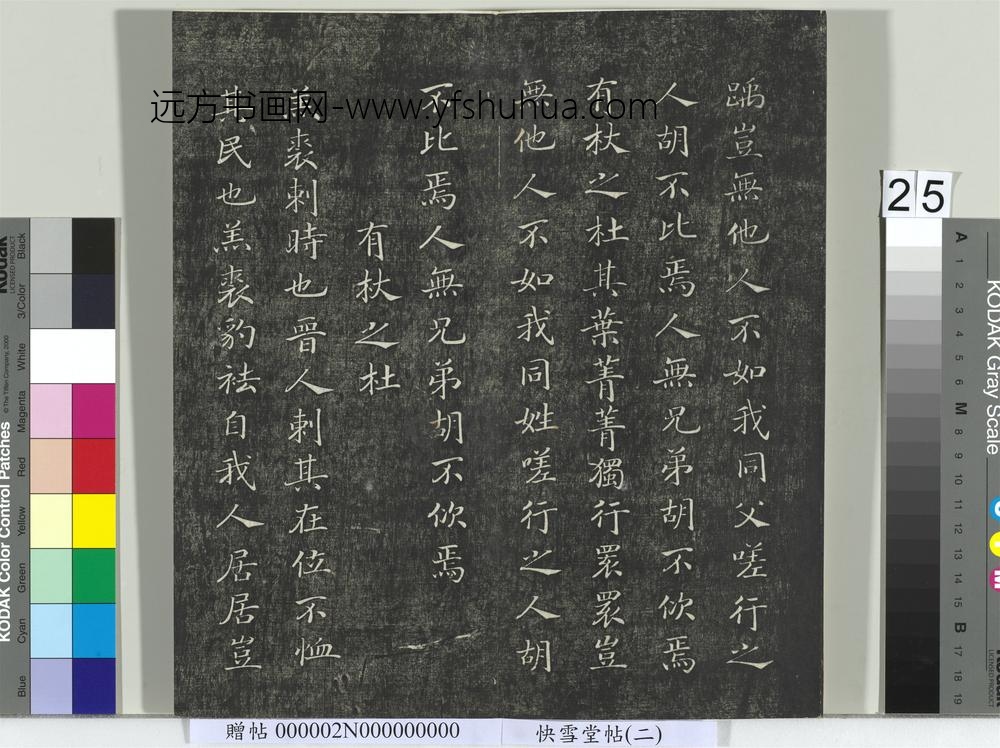 踽豈無他人不如我同父嗟行之
人胡不比焉人無兄弟胡不佽焉
有杕之杜其葉菁菁獨行睘睘豈
無他人不如我同姓嗟行之人胡
不比焉人無兄弟胡不佽焉
有杕之杜
羔裘刺時也晉人刺其在位不恤
其民也羔裘豹袪自我人居居豈
远方书画网-www.yfshuhua.com
25
贈帖 000002N000000000
快雪堂帖(二)
KODAK Color Control Patches
© The Tiffen Company, 2000
Kodak
LICENSED PRODUCT
Blue
Cyan
Green
Yellow
Red
Magenta
White
3/Color
Black
KODAK Gray Scale
A 1 2 3 4 5 6 M 8 9 10 11 12 13 14 15 B 17 18 19